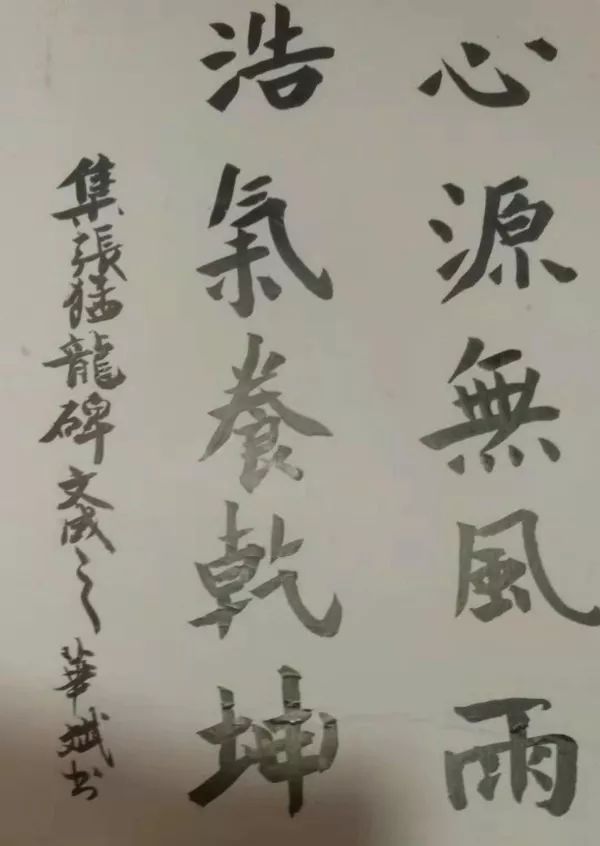 心源無風雨
浩氣養乾坤
集張猛龍碑文成之華斌書